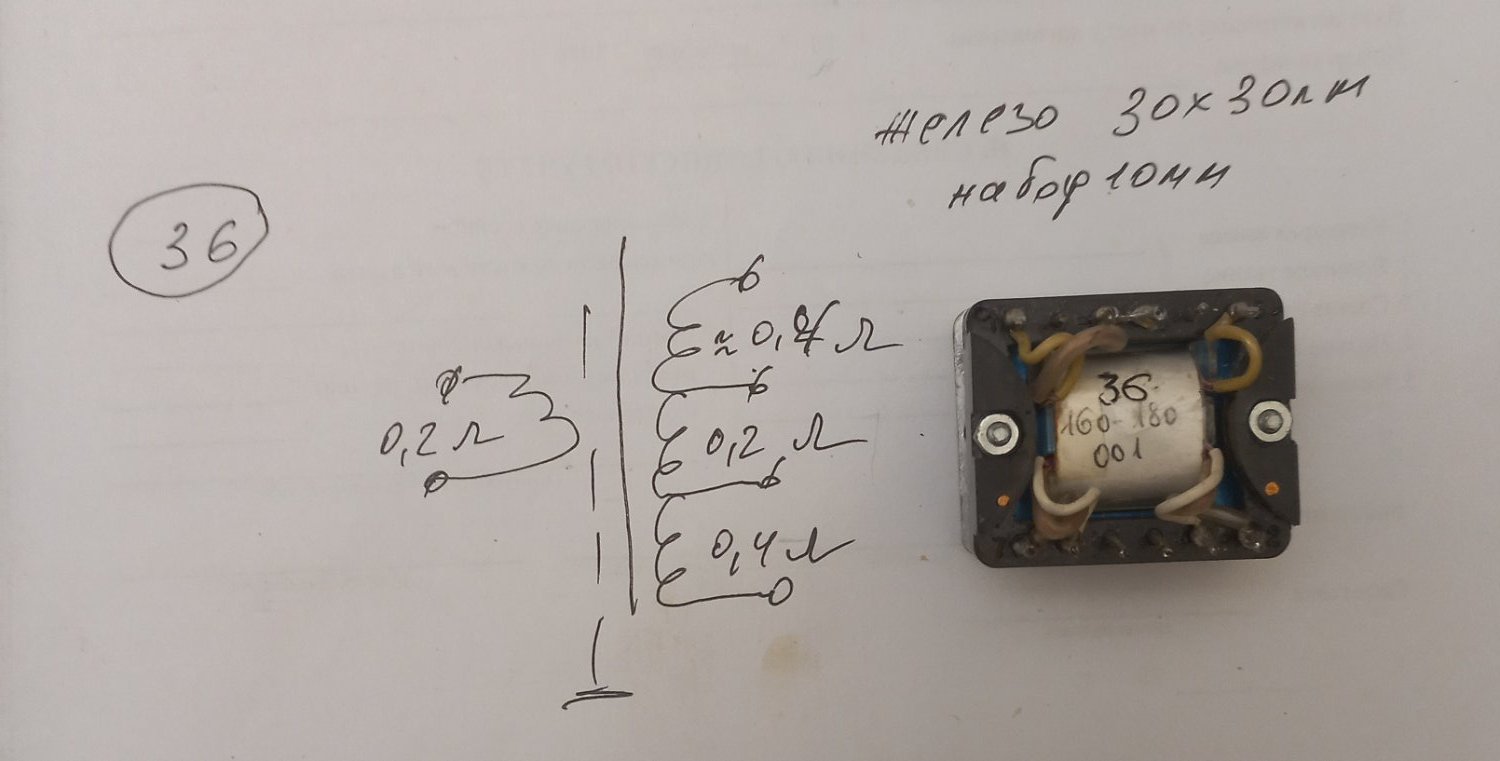 железо 30х30мм
набор 10мм
36
0,2 Ω
0,2 Ω
0,4 Ω
36
160-180
001
7
8